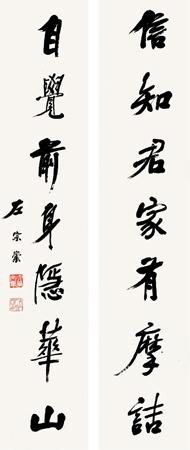 信知君家有摩詰
自覺前身隱華山
石宗棠